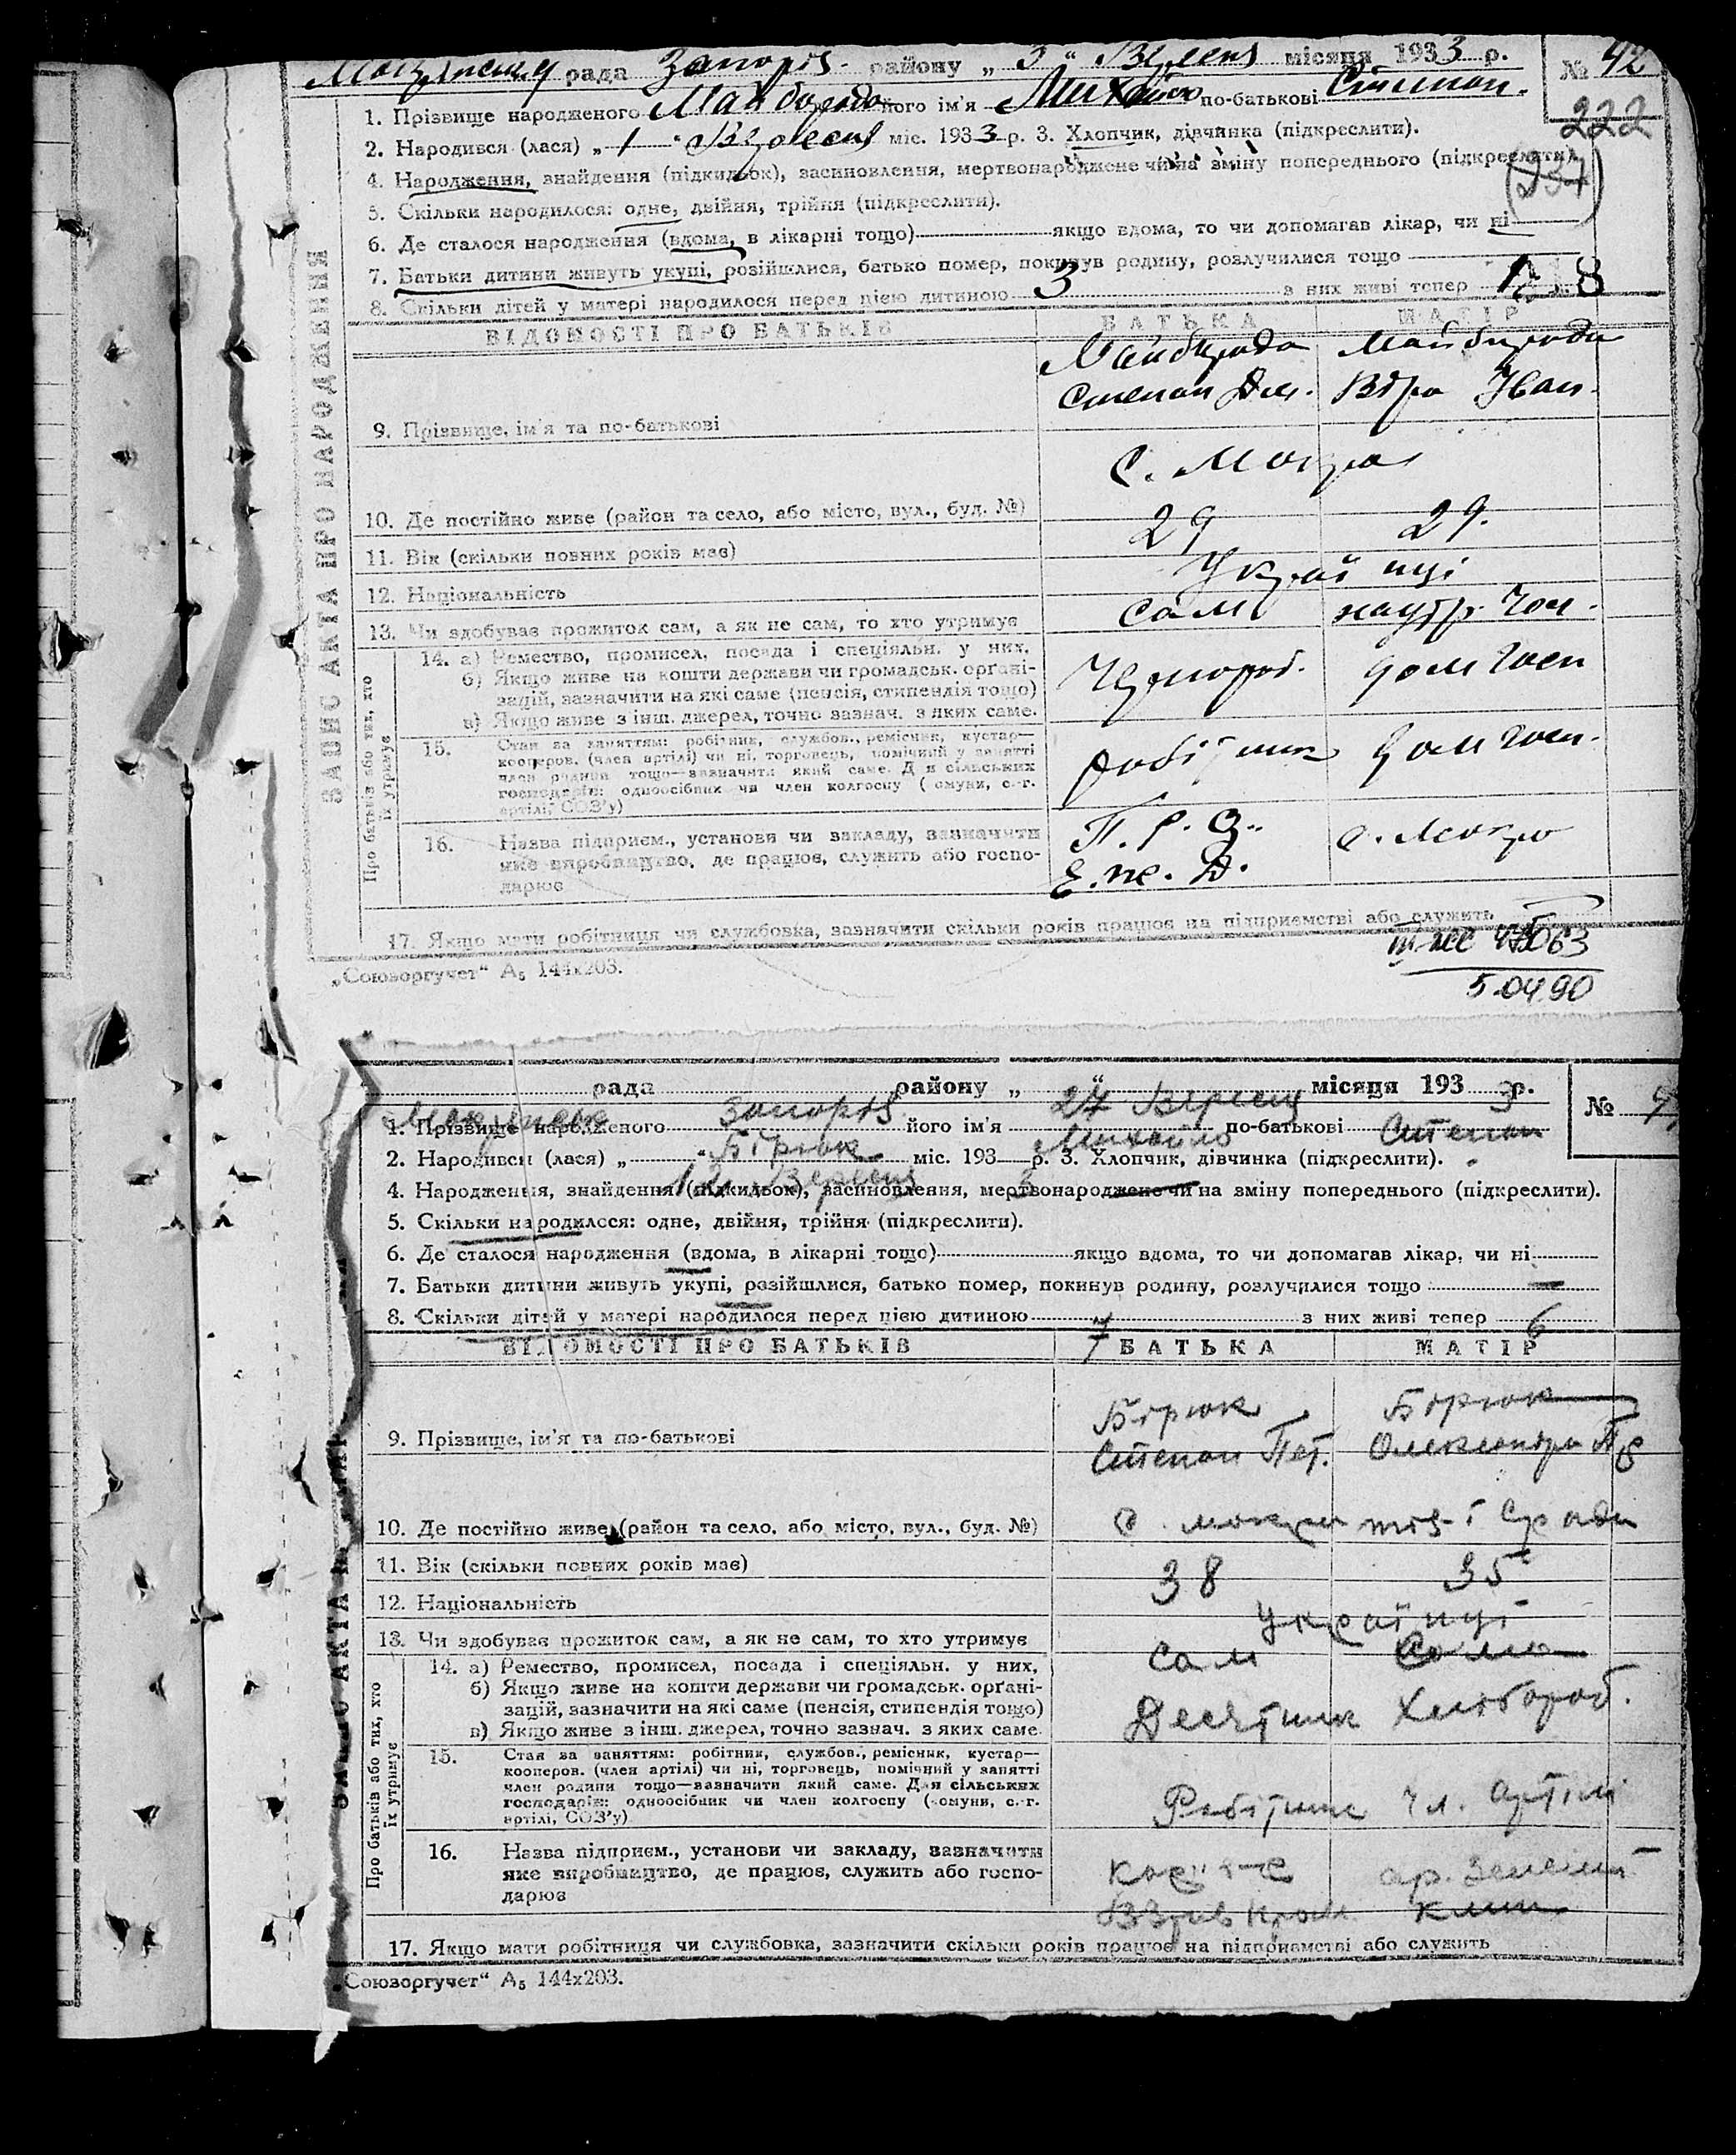 рада Запоріз. району „ 3 “ Вересня місяця 1933 р.
№ 42
222
(237)
1. Прізвище народженого Майборода його ім'я Михайло по-батькові Степан.
2. Народився (лася) „ 1 “ Вересня міс. 1933 р. 3. Хлопчик, дівчинка (підкреслити).
4. Народження, знайдення (підкидьок), засиновлення, мертвонароджене чи на зміну попереднього (підкреслити).
5. Скільки народилося: одне, двійня, трійня (підкреслити).
6. Де сталося народження (вдома, в лікарні тощо) якщо вдома, то чи допомагав лікар, чи ні
7. Батьки дитини живуть укупі, розійшлися, батько помер, покинув родину, розлучилися тощо
8. Скільки дітей у матері народилося перед цією дитиною 3 з них живі тепер
ЗАПИС АКТА ПРО НАРОДЖЕННЯ
ВІДОМОСТІ ПРО БАТЬКІВ БАТЬКА МАТІР
Майборода Майборода
Степан Дм. Віра Іван.
9. Прізвище, ім'я та по-батькові
с. Мокра
10. Де постійно живе (район та село, або місто, вул., буд. №)
11. Вік (скільки повних років має) 29 29.
12. Національність Українці
13. Чи здобуває прожиток сам, а як не сам, то хто утримує сам
Про батьків або тих, хто їх утримує
14. а) Ремество, промисел, посада і спеціяльн. у них.
б) Якщо живе на кошти держави чи громадськ. органі-
зацій, зазначити на які саме (пенсія, стипендія тощо)
в) Якщо живе з інш. джерел, точно зазнач. з яких саме.
Чорнороб. дом госп
15. Стан за заняттям: робітник, службов., ремісник, кустар—
кооперов. (член артілі) чи ні, торговець, помічний у занятті
член родини тощо—зазначити який саме. Для сільських
господарів: одноосібник чи член колгоспу (комуни, с.-г.
артілі, СОЗ'у)
робітник дом госп.
16. Назва підприєм., установи чи закладу, зазначити
яке виробництво, де працює, служить або госпо-
дарює
П. Р. З. с. Мокра
Е. ж. д.
17. Якщо мати робітниця чи службовка, зазначити скільки років працює на підприємстві або служить
5.04.90
„Союзоргучет“ А₅ 144x203.
рада Запоріз району „ 27 “ Вересня місяця 1933 р.
№
1. Прізвище народженого Бірюк його ім'я Михайло по-батькові Степан
2. Народився (лася) „ 12 “ Вересня міс. 1933 р. 3. Хлопчик, дівчинка (підкреслити).
4. Народження, знайдення (підкидьок), засиновлення, мертвонароджене чи на зміну попереднього (підкреслити).
5. Скільки народилося: одне, двійня, трійня (підкреслити).
6. Де сталося народження (вдома, в лікарні тощо) якщо вдома, то чи допомагав лікар, чи ні
7. Батьки дитини живуть укупі, розійшлися, батько помер, покинув родину, розлучилися тощо
8. Скільки дітей у матері народилося перед цією дитиною 7 з них живі тепер 6
ВІДОМОСТІ ПРО БАТЬКІВ БАТЬКА МАТІР
Бірюк Бірюк
9. Прізвище, ім'я та по-батькові Степан Пет. Олександра
10. Де постійно живе (район та село, або місто, вул., буд. №) с. Мокра
11. Вік (скільки повних років має) 38 35
12. Національність Українці
13. Чи здобуває прожиток сам, а як не сам, то хто утримує сам сама
Про батьків або тих, хто їх утримує
14. а) Ремество, промисел, посада і спеціяльн. у них,
б) Якщо живе на кошти держави чи громадськ. органі-
зацій, зазначити на які саме (пенсія, стипендія тощо)
в) Якщо живе з інш. джерел, точно зазнач. з яких саме
Десятник Хлібороб.
15. Стан за заняттям: робітник, службов., ремісник, кустар—
кооперов. (член артілі) чи ні, торговець, помічний у занятті
член родини тощо—зазначити який саме. Для сільських
господарів: одноосібник чи член колгоспу (комуни, с.-г.
артілі, СОЗ'у)
Робітник чл. артілі
16. Назва підприєм., установи чи закладу, зазначити
яке виробництво, де працює, служить або госпо-
дарює
ар. Зелений
клин
17. Якщо мати робітниця чи службовка, зазначити скільки років працює на підприємстві або служить
„Союзоргучет“ А₅ 144x203.